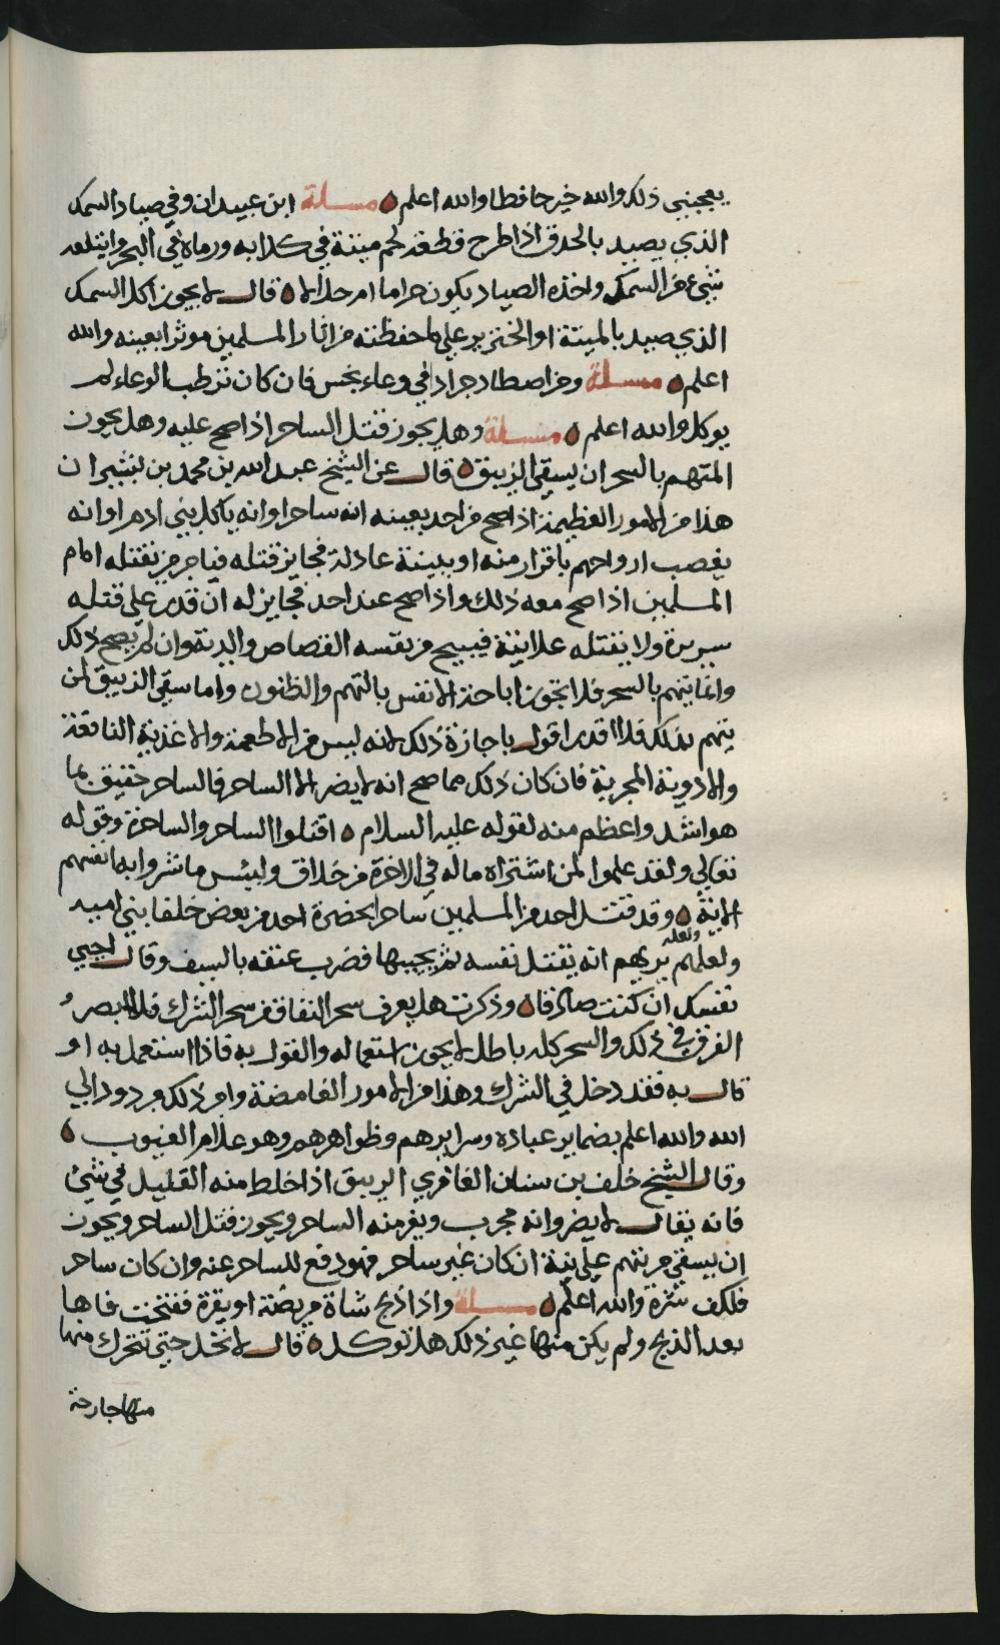 يعجبني ذلك والله خير حافظا والله اعلم ه مسلة ابن عبيدان وفي صياد السمك
الذي يصيد بالحدق اذا طرح قطعة لحم ميتة في كلابه ورماه في البحر وابتلعه
شيء من السمك واخذه الصياد يكون حراما ام حلالا ه قال لا يجوز اكل السمك
الذي صيد بالميتة او الخنزير على ما حفظته من اثار المسلمين موثرا بعينه والله
اعلم ه مسلة ومن اصطاد جرادا في وعاء نجس فان كان نز طب الوعاء لم
يوكل والله اعلم ه مسلة وهل يجوز قتل الساحر اذا صح عليه وهل يجوز
المتهم بالسحر ان يسقى الزيبق ه قال عن الشيخ عبدالله بن محمد بن بشير ان
هذا من الامور العظيمة اذا صح من احد بعينه انه ساحر او انه ياكل بني ادم او انه
يغصب ارواحهم باقرار منه او ببينة عادلة فجايز قتله فياجر من يقتله امام
المسلمين اذا صح معه ذلك واذا صح عند احد فجايز له ان قدر على قتله
سريرة ولا يقتله علانية فيبيح من نفسه القصاص والدية وان لم يصح ذلك
وانما يتهم بالسحر فلا تجوز اباحة الانفس بالتهم والظنون واما سقي الزيبق لمن
يتهم بذلك فلا اقدر اقول باجازة ذلك لانه ليس من الاطعمة والاغذية النافعة
والادوية المجربة فان كان ذلك مما صح انه لا يضر الا الساحر فالساحر حقيق بما
هو اشد واعظم منه لقوله عليه السلام ه اقتلوا الساحر والساحرة وقوله
تعالى ولقد علموا لمن اشتراه ماله في الاخرة من خلاق ولبئس ما شروا به انفسهم
الاية ه وقد قتل احد من المسلمين ساحرا بحضرة احد من بعض خلفا بني اميه
ولعلهم ولعله يريهم انه يقتل نفسه ثم يحييها فضرب عنقه بالسيف وقال احيي
نفسك ان كنت صادقا ه وذكرت هل يعرف سحر النفاق من سحر الشرك فلا ابصر
الفرق في ذلك والسحر كله باطل لا يجوز استعماله والقول به فاذا استعمل به او
قال به فقد دخل في الشرك وهذا من الامور الغامضة وامر ذلك مردود الى
الله والله اعلم بضماير عباده وسرايرهم وظواهرهم وهو علام الغيوب ه
وقال الشيخ خلف بن سنان الغافري الزيبق اذا خلط منه القليل في شيء
فانه يقال لا يضر وانه مجرب ويفر منه الساحر ويجوز قتل الساحر ويجوز
ان يسقى من يتهم على نية ان كان غير ساحر فهو دفع للساحر عنه وان كان ساحر
فلكف شره والله اعلم ه مسلة واذا ذبح شاة مريضة او بقرة ففتحت فاها
بعد الذبح ولم يكن منها غير ذلك هل توكل ه قال لا تحل حتى تتحرك منها
منها جارحة